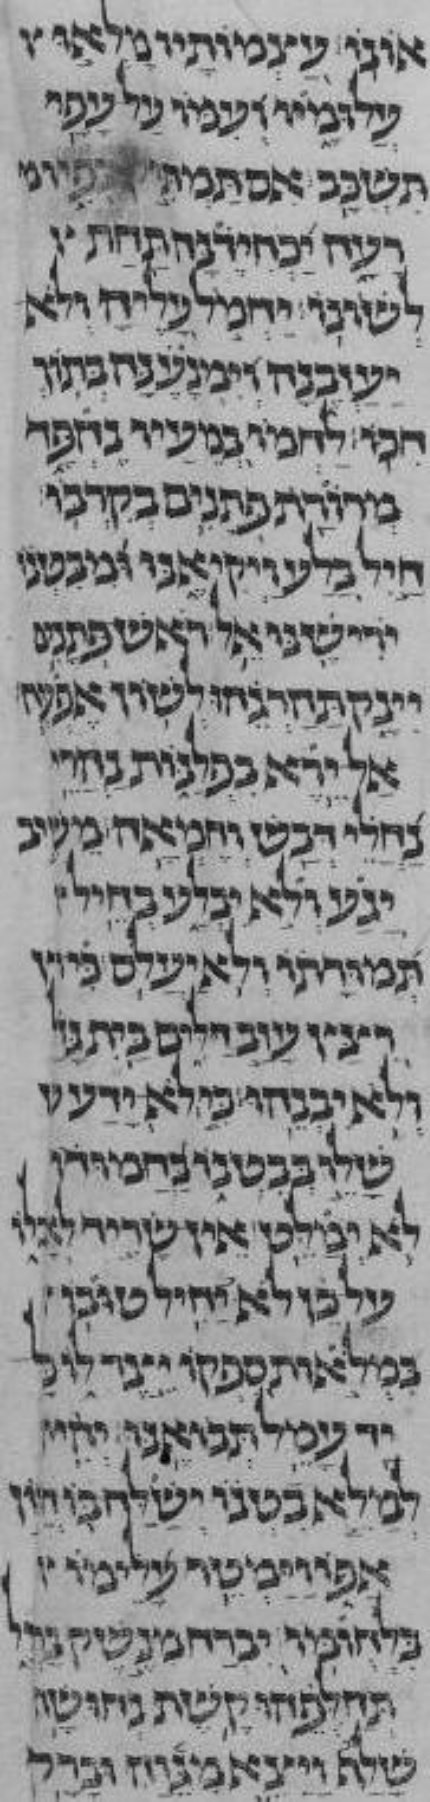 אונו עצמותיו מלאו
עלומיו ועמו על עפר
תשכב אם תמתיק בפיו
רעה יכחידנה תחת
לשונו יחמל עליה ולא
יעזבנה וימנענה בתוך
חכו לחמו במעיו נהפך
מרורת פתנים בקרבו
חיל בלע ויקיאנו ומבטנו
ירישנו אל ראש פתנים
יינק תהרגהו לשון אפעה
אל ירא בפלגות נהרי
נחלי דבש וחמאה משיב
יגע ולא יבלע כחיל
תמורתו ולא יעלס כי
ריצץ עזב דלים בית גזל
ולא יבנהו כי לא ידע
שלו בבטנו בחמודו
לא ימלט אין שריד לאכלו
על כן לא יחיל טובו
במלאות ספקו ייצר לו כל
יד עמל תבואנו יהי
למלא בטנו ישלח בו חרון
אפו וימטר עלימו
בלחומו יברח מנשק ברזל
תחלפהו קשת נחושה
שלף וייצא מגוה וברק